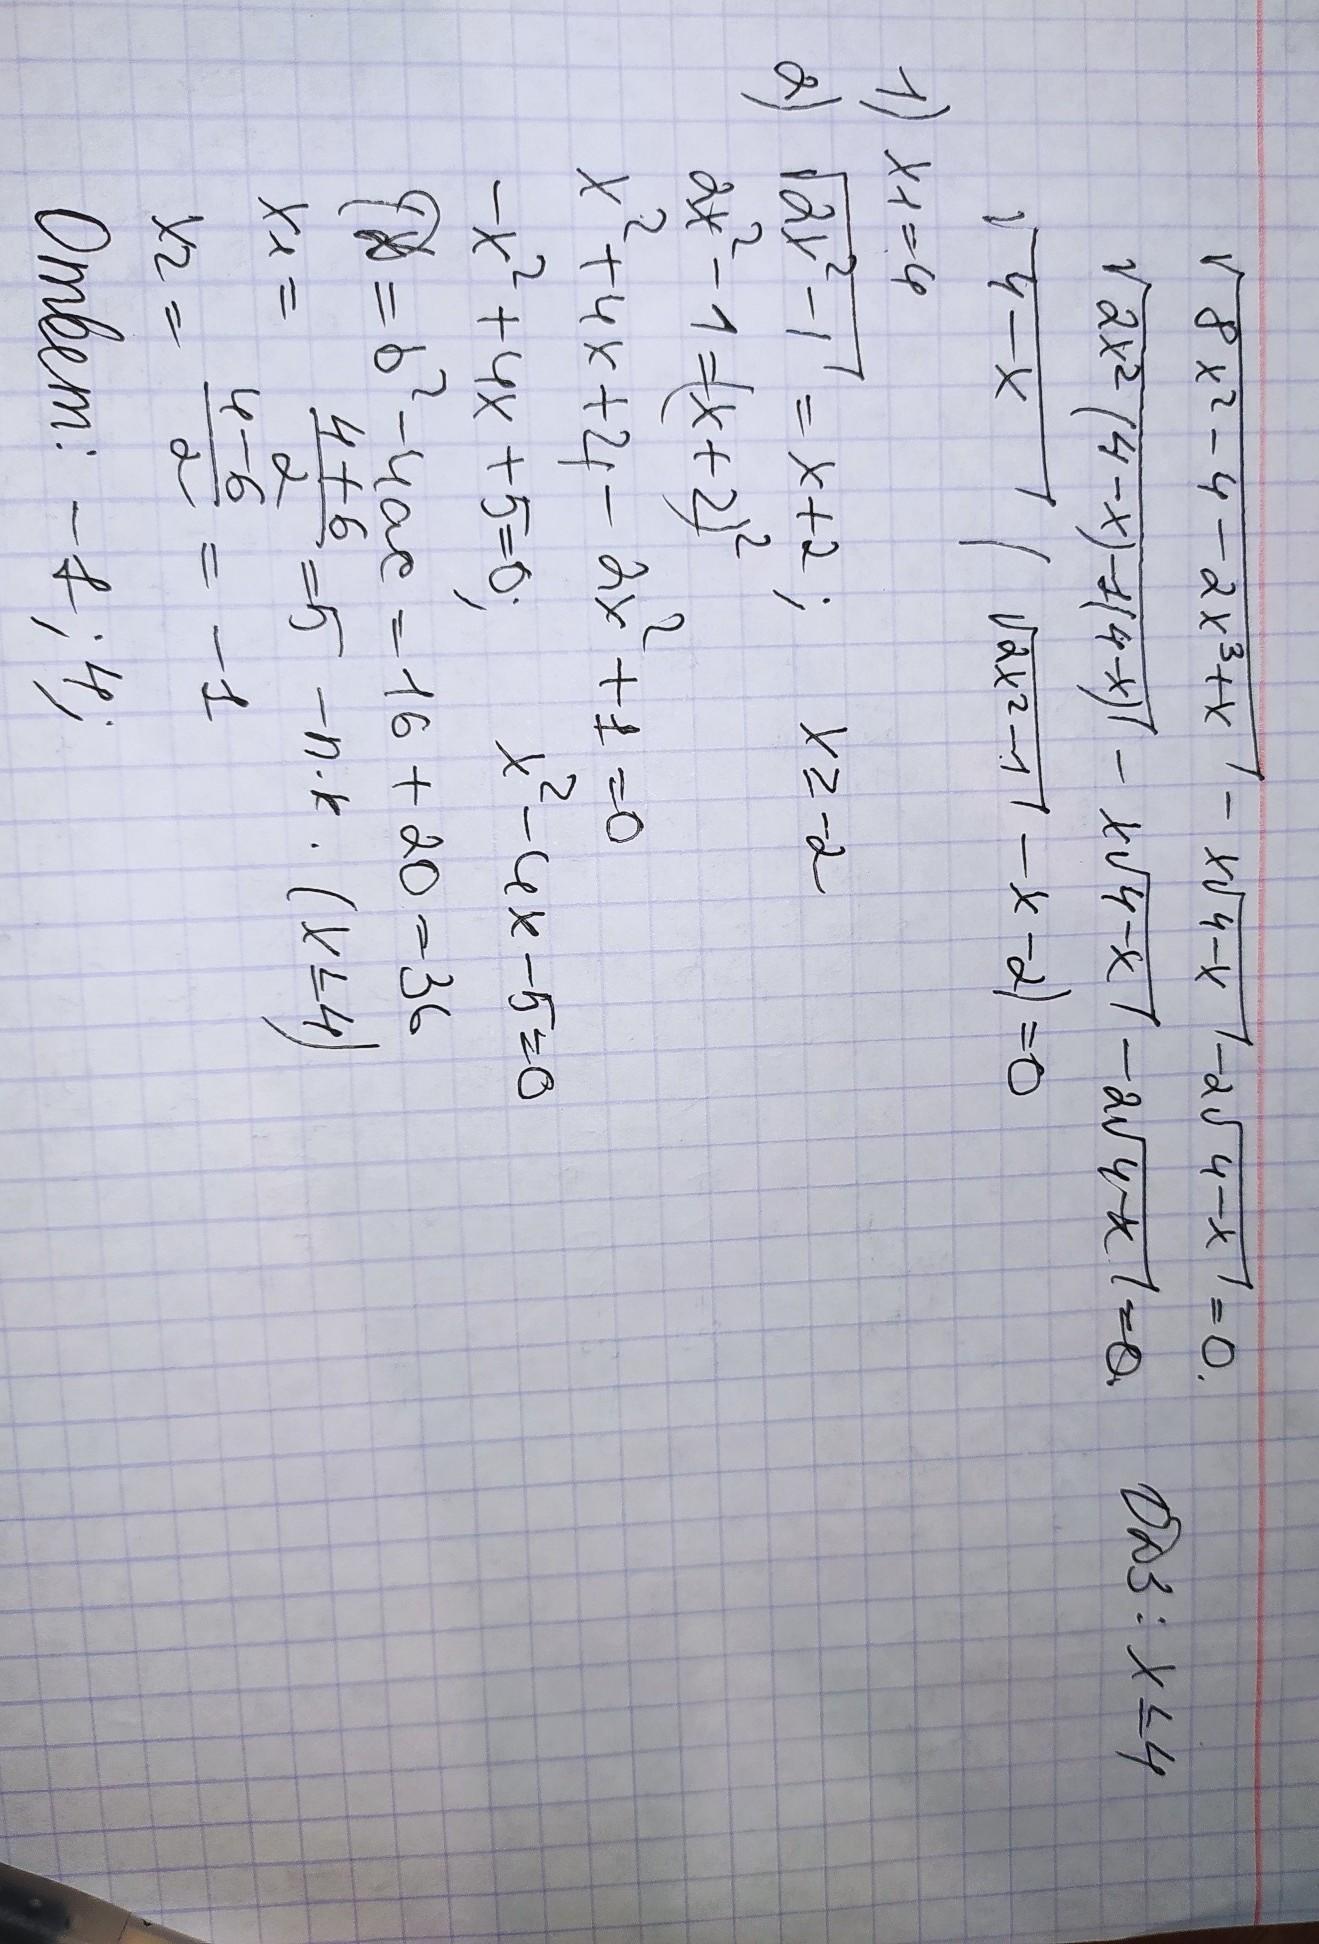 √8x²-4-2x³+x - x√4-x - 2√4-x = 0.
√2x²(4-x)-1(4-x) - x√4-x - 2√4-x = 0. ОДЗ: x≤4
√4-x (√2x²-1 - x - 2) = 0
1) x₁=4
2) √2x²-1 = x+2; x≥-2
2x²-1=(x+2)²
x²+4x+4-2x²+1=0
-x²+4x+5=0; x²-4x-5=0
= b²-4ac = 16+20=36
x₁ = 4+6/2 = 5 - п.к. (x≤4)
x₂ = 4-6/2 = -1
Ответ: -1; 4;